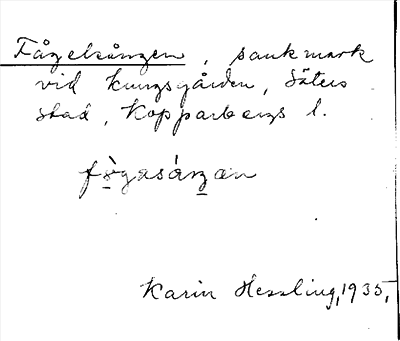 Fågelsången, sankmark
vid Kungsgården, Säters
stad, Kopparbergs l.
fògasáŋan
Karin Hessling, 1935,